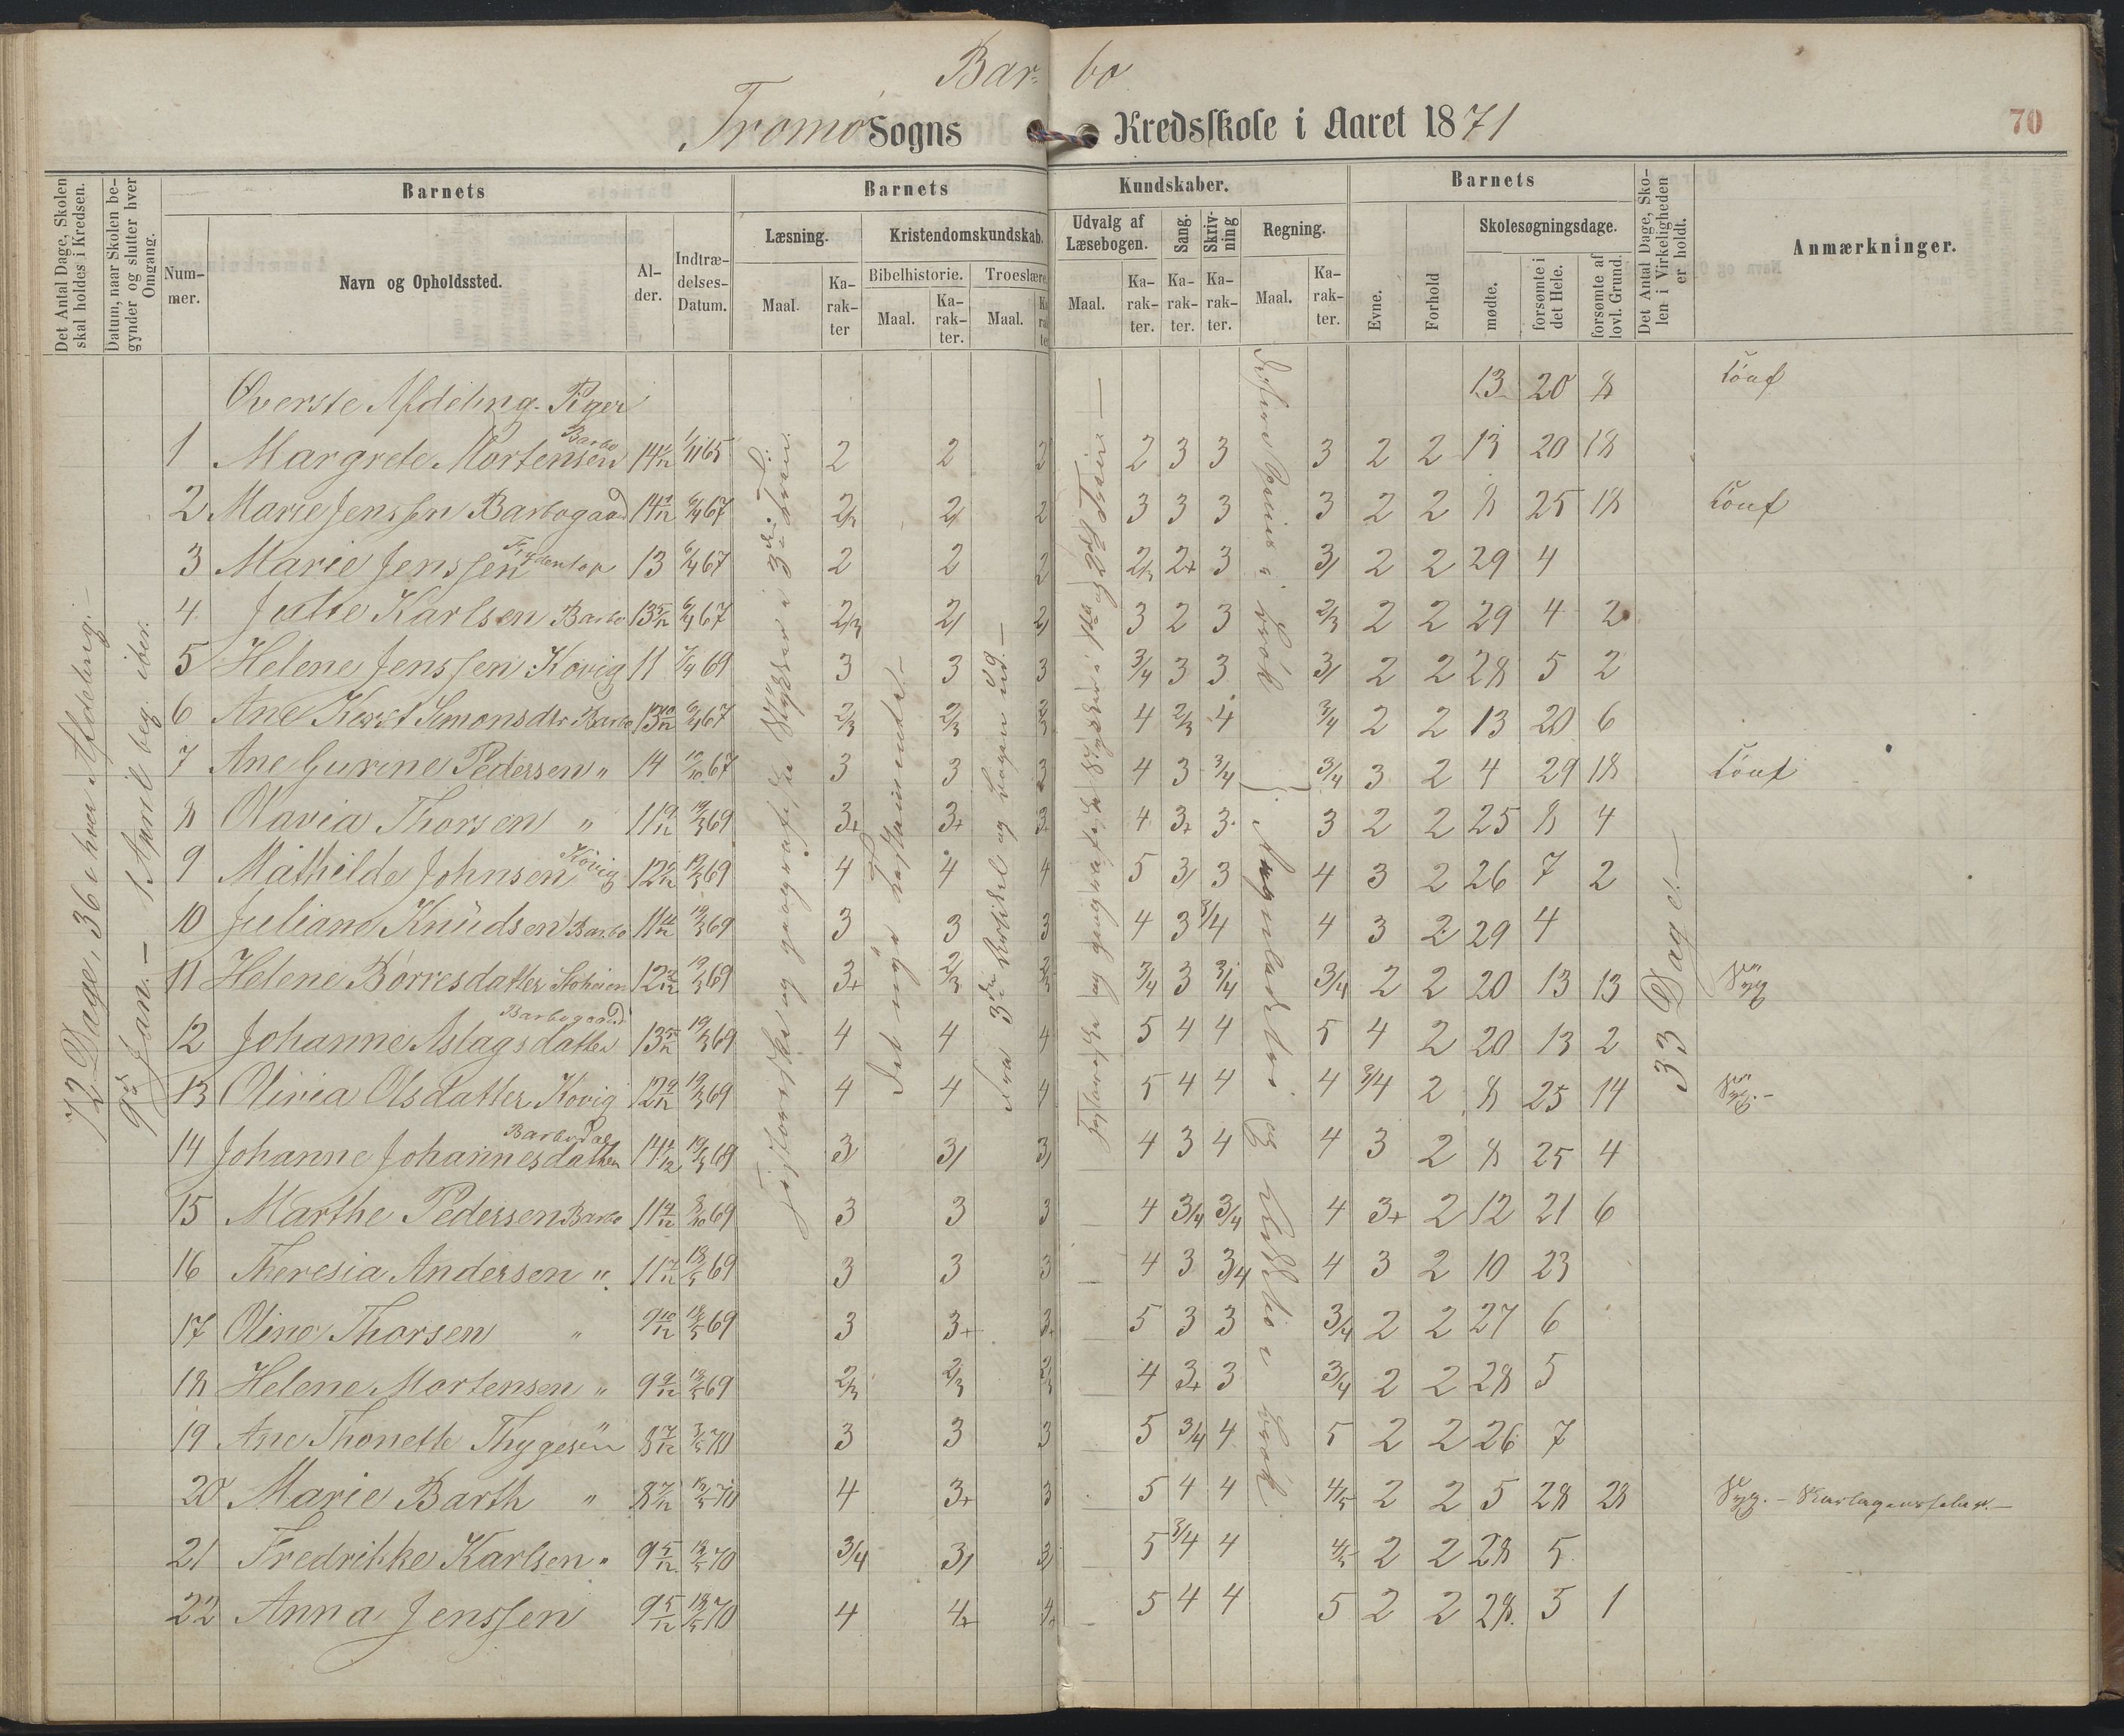 Bar- bo
Tromø Sogns Kredsskole i Aaret 1871
70
Det Antal Dage, Skolen skal holdes i Kredsen.
Datum, naar Skolen begynder og slutter hver Omgang.
Barnets
Nummer.
Navn og Opholdssted.
Alder.
Indtrædelses-Datum.
Barnets Kundskaber.
Læsning.
Maal.
Karakter
Kristendomskundskab.
Bibelhistorie.
Maal.
Karakter.
Troeslære.
Maal.
Udvalg af Læsebogen.
Maal.
Karakter.
Sang.
Karakter.
Skrivning
Karakter.
Regning.
Maal.
Karakter.
Barnets
Evne.
Forhold
Skolesøgningsdage.
mødte.
forsømte i det Hele.
forsømte af lovl. Grund.
Det Antal Dage, Skolen i Virkeligheden er holdt.
Anmærkninger.
72 Dage, 36 i hver Afdeling.
9de Jan. - 1 April beg. iber.
33 Dage.
Øverste Afdeling. Piger 13 20 8
1 Margrete Mortensen Barbo 14 1/12 1/11 65 2 2 2 2 3 3 3 2 2 13 20 18
2 Marie Jenssen Barbogaard 14 6/4 67 2/3 2/ 2 3 3 3 3 2 2 8 25 18 Conf
3 Marie Jenssen 13 6/4 67 2 2 2 2/3 2+ 3 3/ 2 2 29 4
4 Julie Karlsen Barbo 13 5/12 6/4 67 2/3 2/ 2/ 3 2 3 2/3 2 2 29 4 2
5 Helene Jenssen Kovig 11 7/4 69 3 3 3 3/4 3 3 3/ 2 2 28 5 2
6 Ane Kerst Simonsdtr Barbo 13 10/12 6/4 67 2/3 2/3 2/3 4 2/3 4 3/4 2 2 13 20 6
7 Ane Gurine Pedersen " 14 10/10 67 3 3 3 4 3 3/4 3/4 3 2 4 29 18 Conf
8 Olavia Thorsen " 11 9/12 19/3 69 3+ 3+ 3+ 4 3+ 3 3 2 2 25 8 4
9 Mathilde Johnsen Kovig 12 19/3 69 4 4 4 5 3/ 3 4 3 2 26 7 2
10 Juliane Knüdsen Barbo 11 19/3 69 3 3 3 4 3 3/4 4 3 2 29 4
11 Helene Børresdatter 12 19/3 69 3+ 2/3 2/3 3/4 3 3/4 3/4 2 2 20 13 13 Syg
12 Johanne Aslagsdatter Barbogaard 13 5/12 19/3 69 4 4 4 5 4 4 5 4 2 20 13 2
13 Olivia Olsdatter Kovig 12 9/12 19/3 69 4 4 4 5 4 4 4 3/4 2 8 25 14 Syg.-
14 Johanne Johannesdatter Barbodal 14 19/3 69 3/ 3/ 3/ 4 3 4 4 3 2 8 25 4
15 Marthe Pedersen Barbo 11 69 3 3 3 4 3/4 3/4 4 3+ 2 12 21 6
16 Theresia Andersen " 11 18/5 69 3 3 3 4 3 3/4 4 3 2 10 23
17 Oline Thorsen " 9 10/12 18/5 69 3 3+ 3+ 5 3 3 3/4 2 2 27 6
18 Helene Mortensen " 9 9/12 18/5 69 2/3 2/3 2/3 4 3+ 3 3/4 2 2 28 5
19 Ane Thonette Thygesen " 8 7/12 3/5 70 3 3 3 5 3/4 4 5 2 2 26 7
20 Marie Barth " 8 7/12 70 4 3+ 3 5 4 4 4/5 2 2 5 28 28 Syg. - Skarlagensfeber.-
21 Fredrikke Karlsen " 9 5/12 18/5 70 3/4 3/ 3/ 5 3/4 4 4/5 2 2 28 5
22 Anna Jenssen 9 5/12 18/5 70 4 4+ 4+ 5 4 4 5 2 2 28 5 1